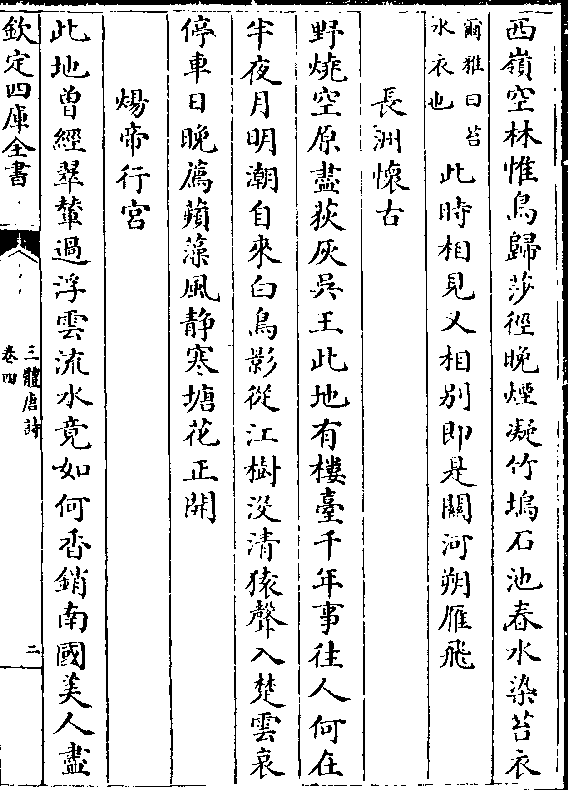 西嶺空林惟鳥歸莎徑晚煙凝竹塢石池春水染苔衣
爾雅曰苔
水衣也
此時相見又相別即是關河朔雁飛
長洲懷古
野燒空原盡荻灰吳王此地有樓臺千年事往人何在
半夜月明潮自來白鳥影從江樹沒清猿聲入楚雲哀
停車日晚薦蘋藻風静寒塘花正開
煬帝行宮
此地曾經翠輦過浮雲流水竟如何香銷南國美人盡
欽定四庫全書
三體唐詩
卷四
二